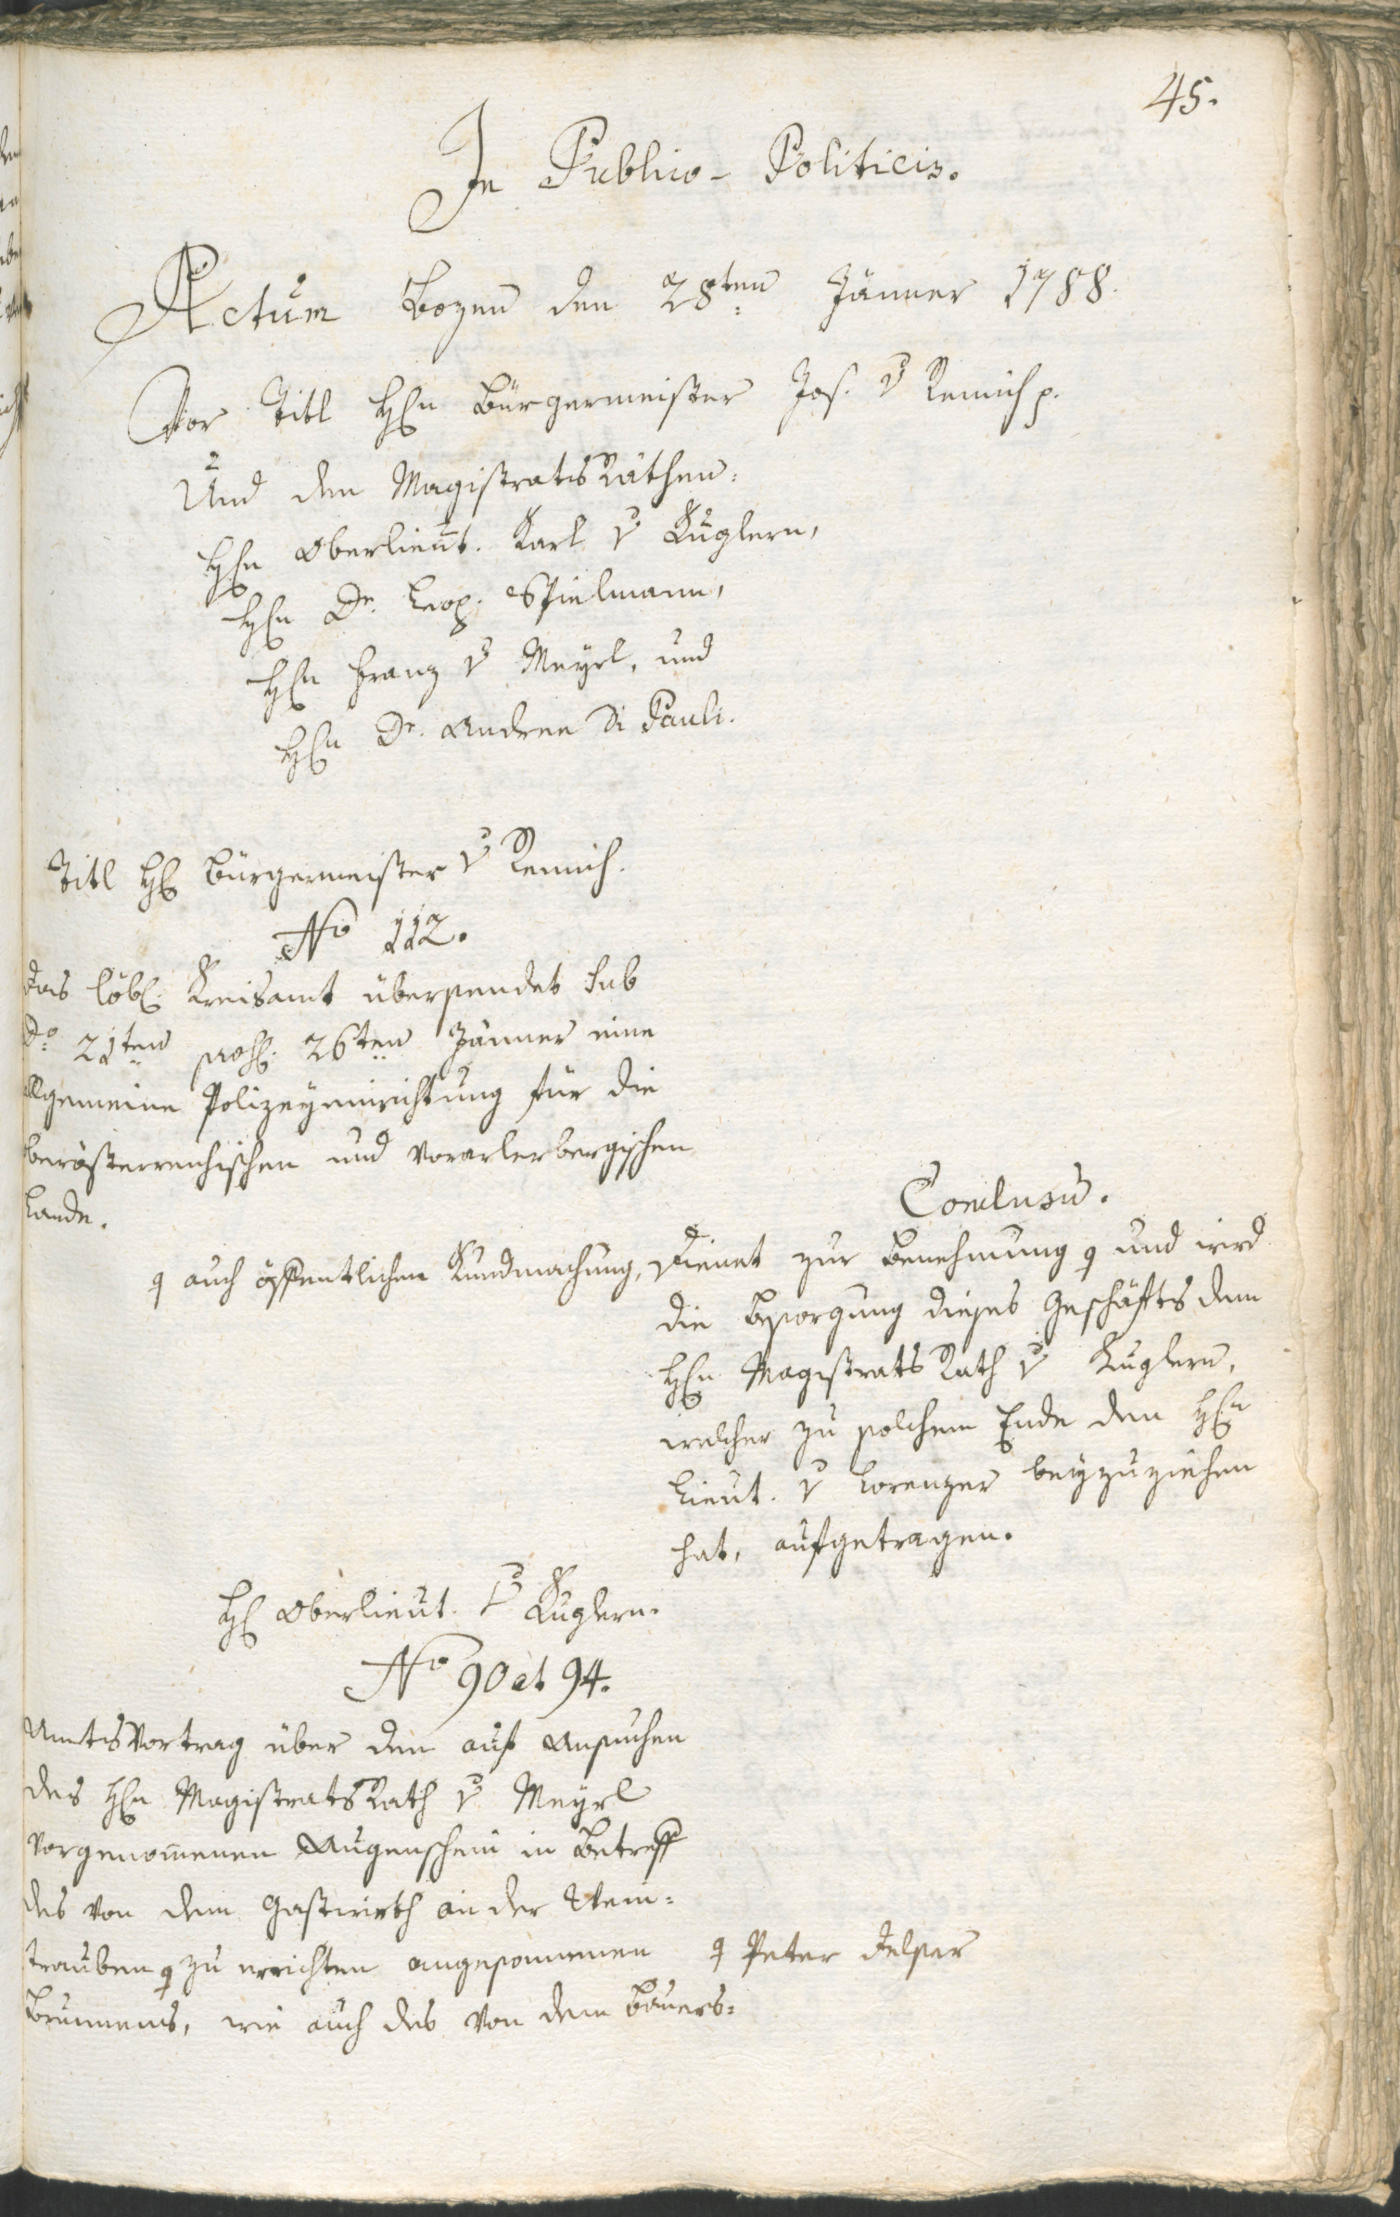 45.
In Publico-Politicis.
Actum Bozen den 28ten Jänner 1788.
Vor Titl HEn Bürgermeister Jos. v Remich p.
Und den MagistratsRäthen:
HEn Oberlieut. Karl v Kuglern,
HEn Dr. Leop. Spielmann,
HEn Franz v Meyrl, und
HEn Dr. Andree Di Pauli.
Titl HE Bürgermeister v Remich.
No 112.
Das löbl. Kreisamt übersendet sub
do 21ten 26ten Jänner eine
llgemeine Polizeyeinrichtung für die
berösterreichischen und vorarlerbergischen
Lande.
Conclusum.
auch öffentlichen Kundmachung,
Dienet zur Benehmung und wird
die Besorgung dieses Geschäfts dem
HEn MagistratsRath v Kuglern,
welcher zu solchem Ende den HEn
Lieut. v Lorenzer beyzuziehen
hat, aufgetragen.
HE Oberlieut. v Kuglern.
No 90 et 94.
Amtsvortrag über den auf Ansuchen
des HEn MagistratsRath v Meyrl
vorgenommenen Augenschein in Betreff
des von dem Gastwirth an der Wein=
trauben zu errichten angesonnenen
Peter Delser
Brunnens, wie auch des von dem Bauers=